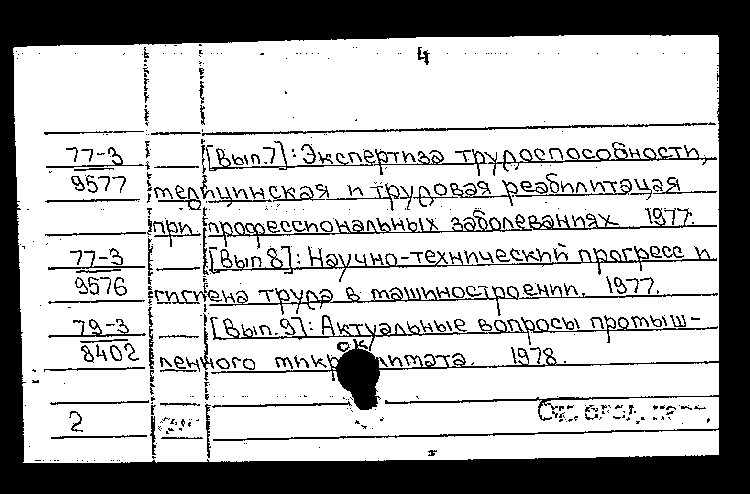 4
77-3 [Вып.7]: Экспертиза трудоспособности,
9577 медицинская и трудовая реабилитация
при профессиональных заболеваниях 1977.
77-3 [Вып.8]: Научно-технический прогресс и
9576 гигиена труда в машиностроении. 1977.
79-3 [Вып.9]: Актуальные вопросы промыш-
8402 ленного микроклимата. 1978.
2